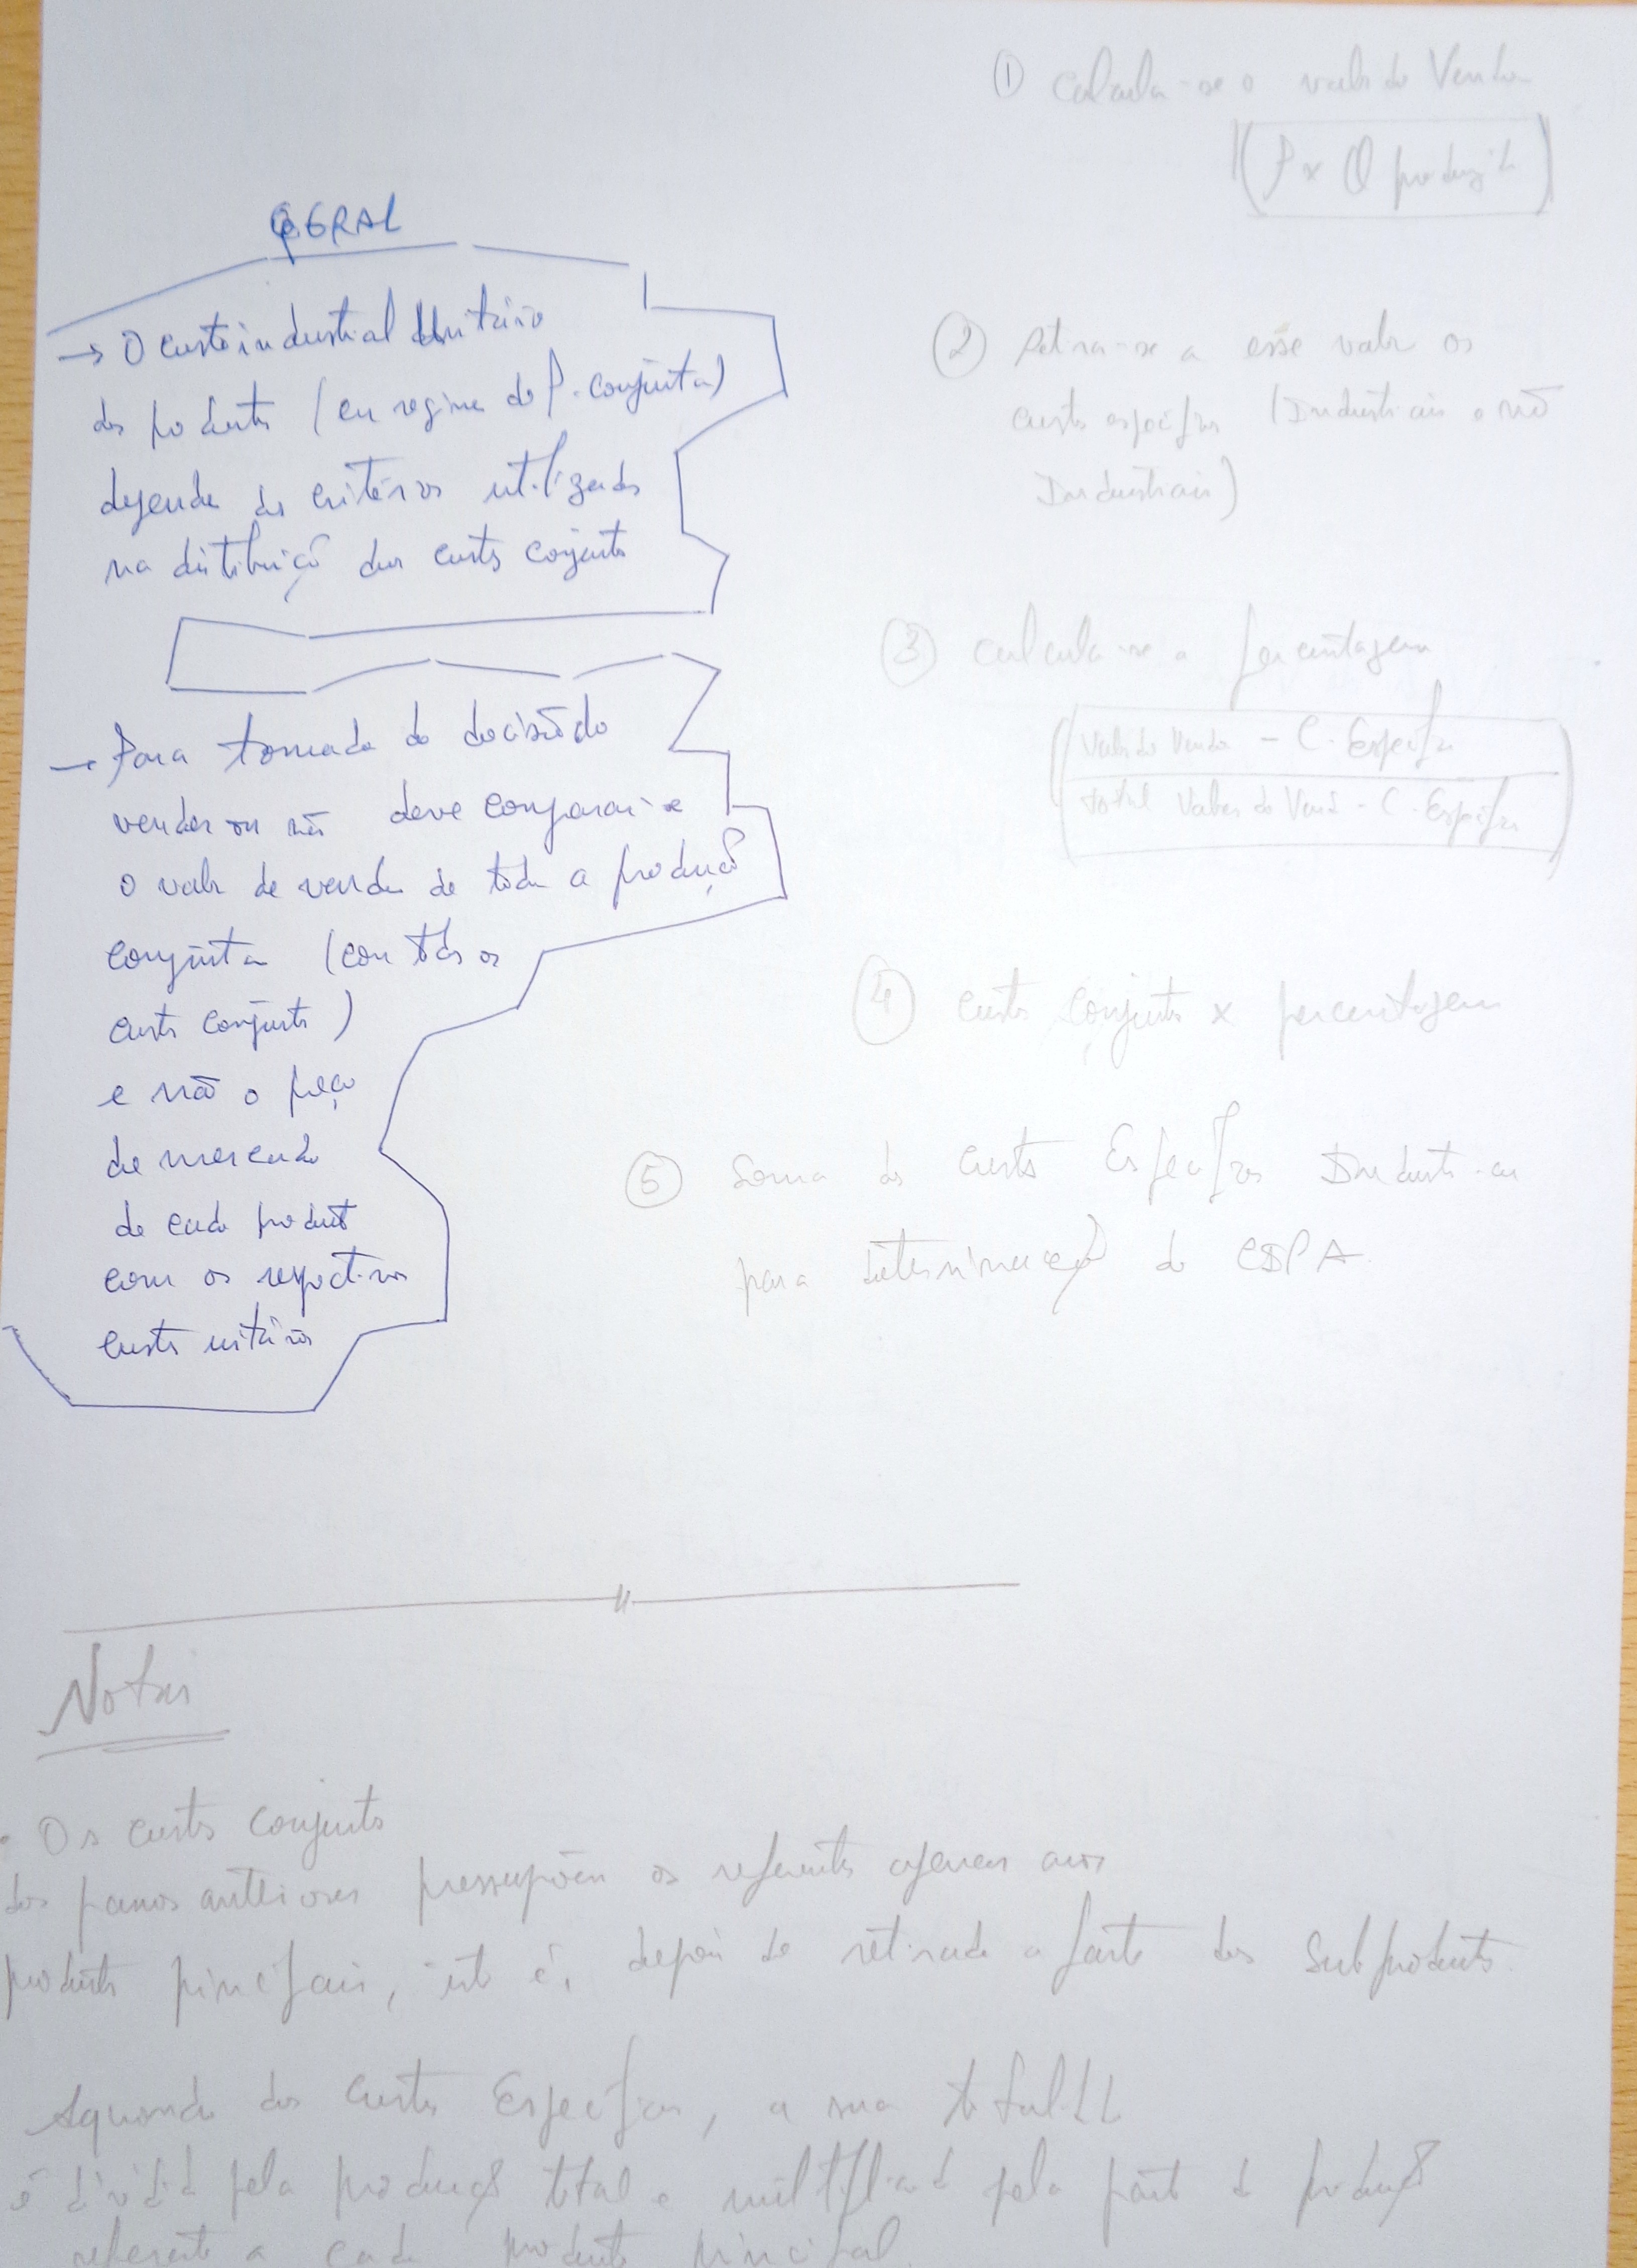 GERAL
→ O custo industrial Unitário
dos produtos (em regime de P. conjunta)
depende dos critérios utilizados
na distribuição dos custos conjuntos
→ Para tomada de decisão de
vender ou não deve comparar-se
o valor de venda de toda a produção
conjunta (com todos os
custos conjuntos)
e não o preço
de mercado
de cada produto
com os respectivos
custos unitários
① Calcula-se o valor de Venda
(P x Q produzida)
② Retira-se a esse valor os
custos específicos (Industriais e não
Industriais)
③ Calcula-se a percentagem
(Valor de Venda - C. Específicos
total Valor de Venda - C. Específicos)
④ Custos conjuntos x percentagem
⑤ Soma dos custos Específicos Industriais
para determinação do CIPA.
Notas
• Os custos conjuntos
dos passos anteriores pressupõem os referentes apenas aos
produtos principais, isto é, depois de retirada a parte dos Subprodutos.
Aquando dos custos Específicos, a sua totalidade
é dividida pela produção total e multiplicada pela parte de produção
referente a cada produto principal.